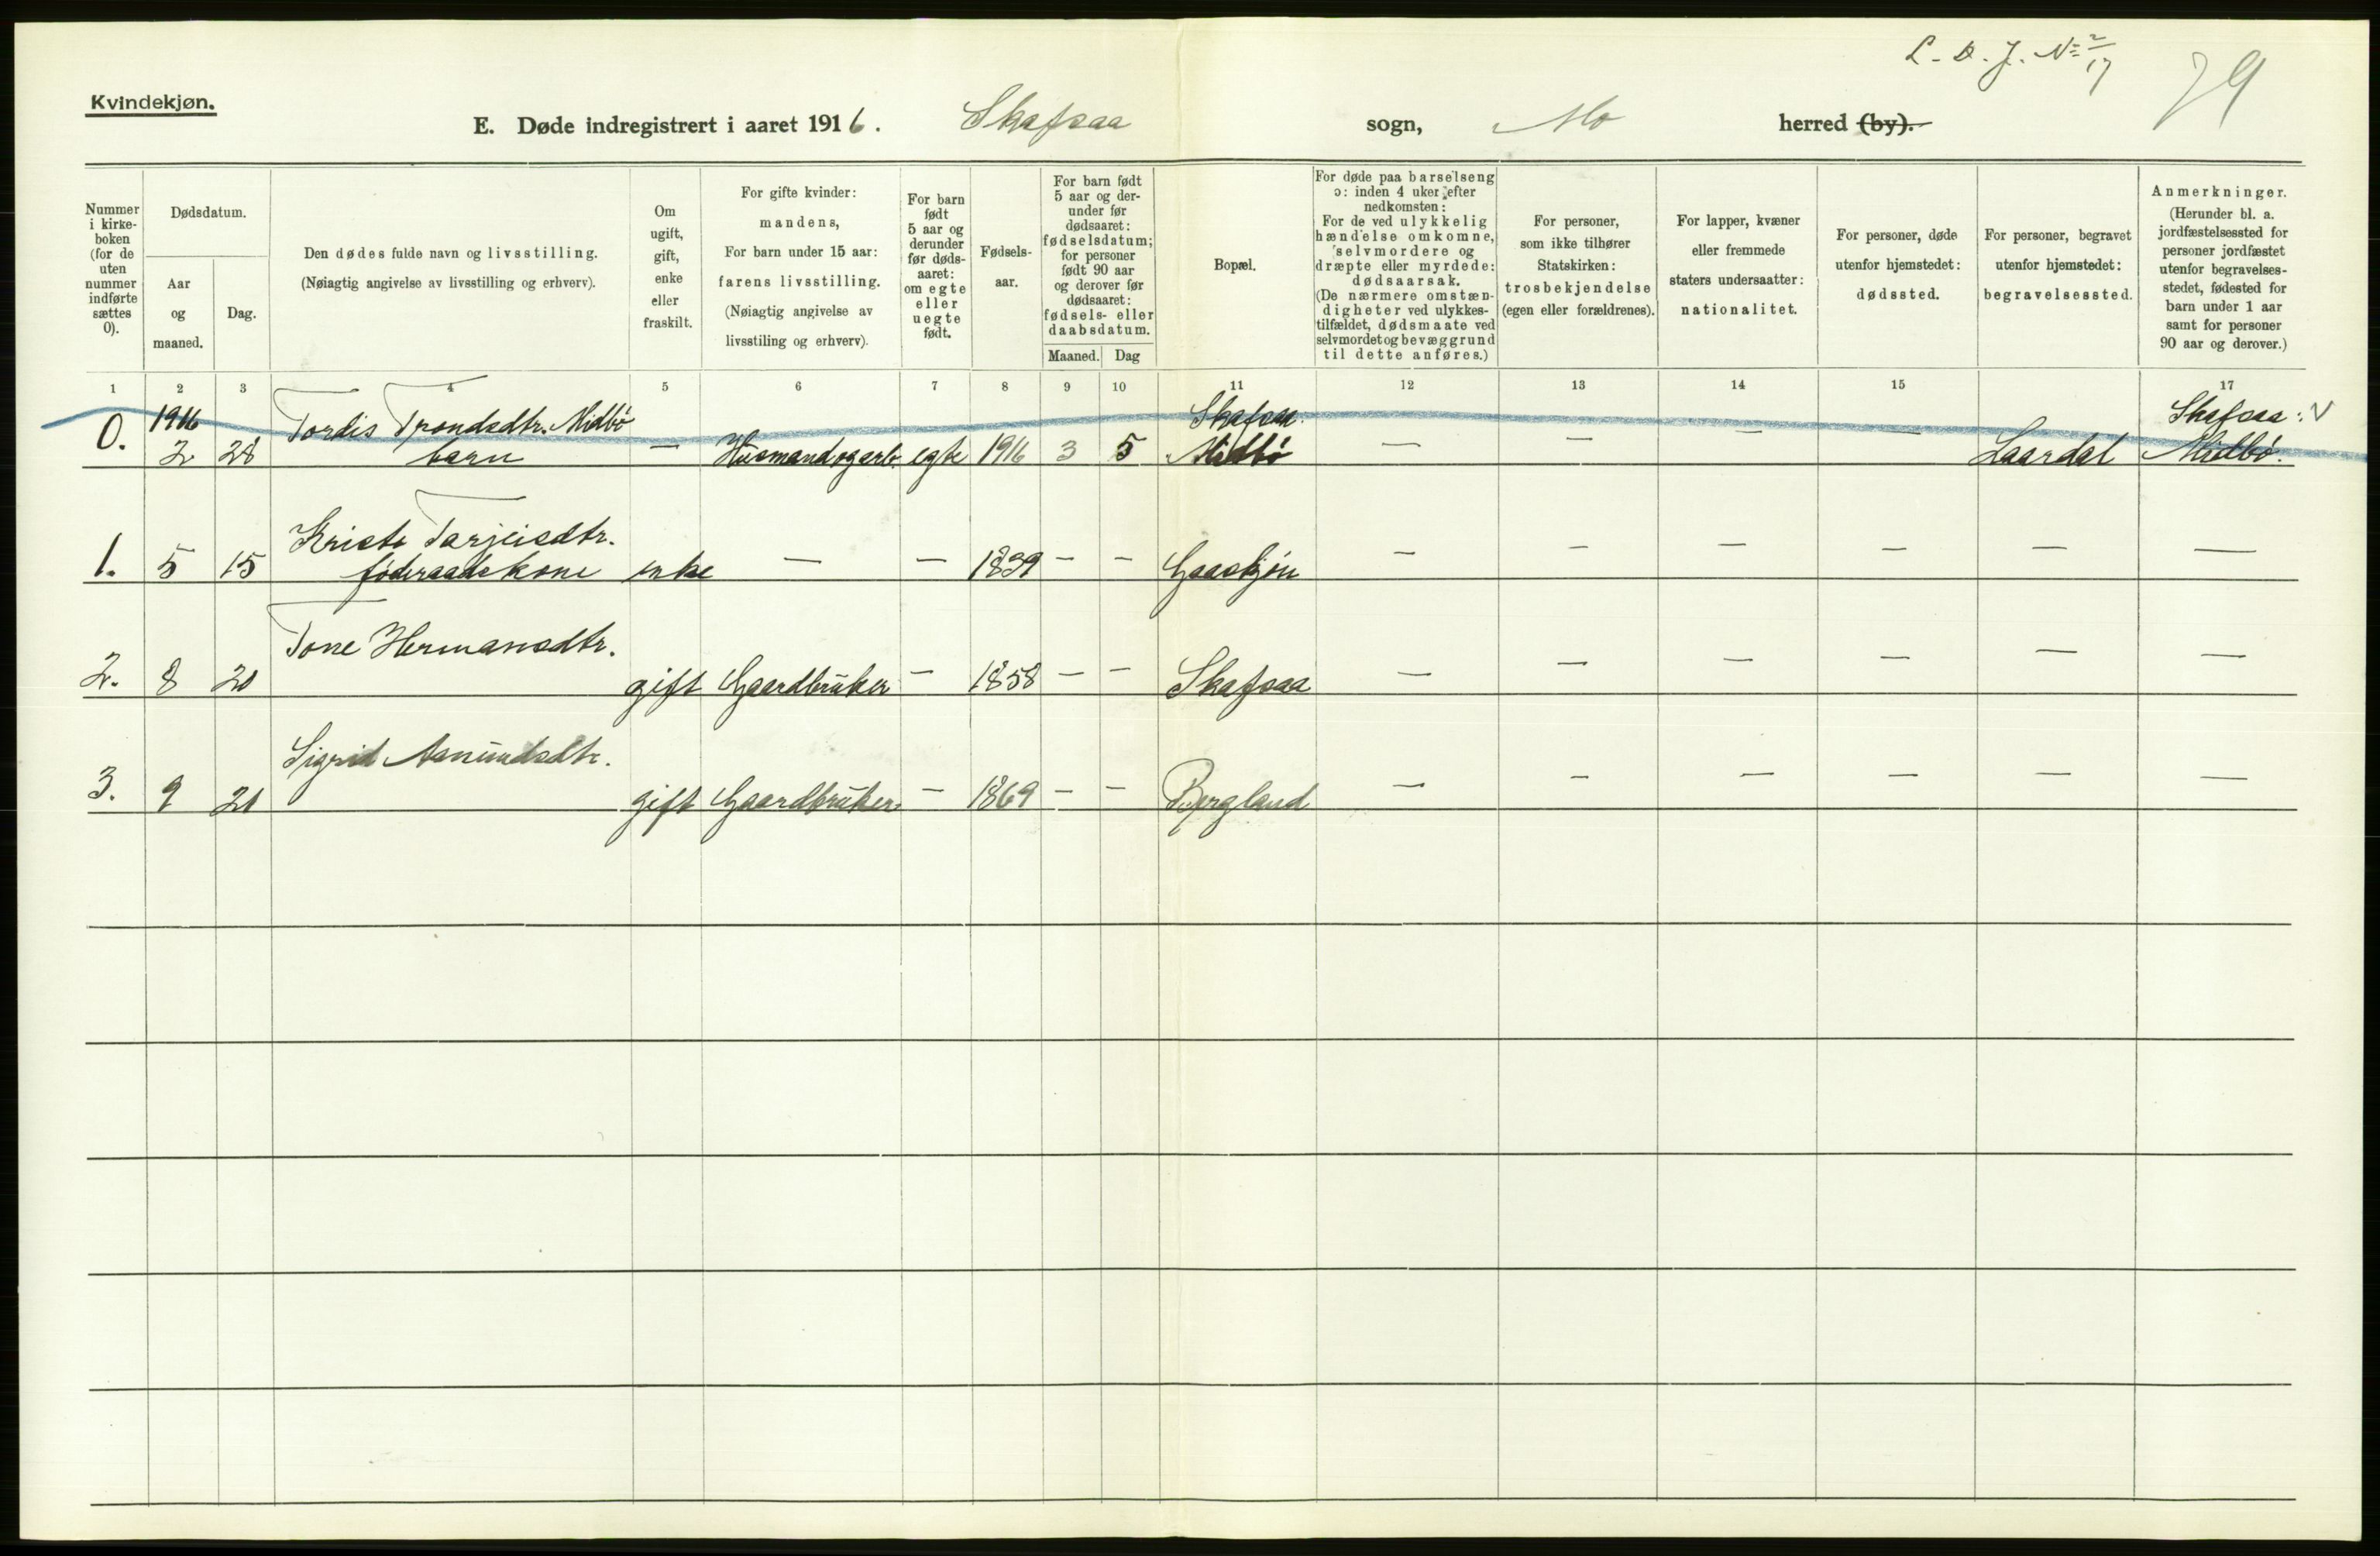 L. D. J. No 2/17
79
Kvindekjøn.
E. Døde indregistrert i aaret 1916. Skafsaa sogn, Mo herred (by).
Nummer
i kirke-
boken
(for de
uten
nummer
indførte
sættes
0).
Dødsdatum.
Aar
og
maaned.
Dag.
Den dødes fulde navn og livsstilling.
(Nøiagtig angivelse av livsstilling og erhverv).
Om
ugift,
gift,
enke
eller
fraskilt.
For gifte kvinder:
mandens,
For barn under 15 aar:
farens livsstilling.
(Nøiagtig angivelse av
livsstiling og erhverv).
For barn
født
5 aar og
derunder
før døds-
aaret:
om egte
eller
uegte
født.
Fødsels-
aar.
For barn født
5 aar og der-
under før
dødsaaret:
fødselsdatum;
for personer
født 90 aar
og derover før
dødsaaret:
fødsels- eller
daabsdatum.
Maaned. Dag
Bopæl.
For døde paa barselseng
ɔ: inden 4 uker efter
nedkomsten:
For de ved ulykkelig
hændelse omkomne,
selvmordere og
dræpte eller myrdede:
dødsaarsak.
(De nærmere omstæn-
digheter ved ulykkes-
tilfældet, dødsmaate ved
selvmordet og bevæggrund
til dette anføres.)
For personer,
som ikke tilhører
Statskirken:
trosbekjendelse
(egen eller forældrenes).
For lapper, kvæner
eller fremmede
staters undersaatter:
nationalitet.
For personer, døde
utenfor hjemstedet:
dødssted.
For personer, begravet
utenfor hjemstedet:
begravelsessted.
Anmerkninger.
(Herunder bl. a.
jordfæstelsessted for
personer jordfæstet
utenfor begravelses-
stedet, fødested for
barn under 1 aar
samt for personer
90 aar og derover.)
1 2 3 4 5 6 7 8 9 10 11 12 13 14 15 17
1916 Tordis Trondsdtr. Midbö Skafsaa. Skafsaa: V
0. 2 28 barn — Husmand og arb. egte 1916 3 5 Midbö — — — — Laardal Midbö.
Kriste Tarjeisdtr.
1. 5 15 föderaadskone enke — — 1839 — — Gaaskjön — — — — — —
Tone Hermansdtr.
2. 8 20 gift Gaardbruker — 1858 — — Skafsaa — — — — — —
Sigrid Asmundsdtr.
3. 9 21 gift Gaardbruker — 1869 — — Bergland — — — — — —